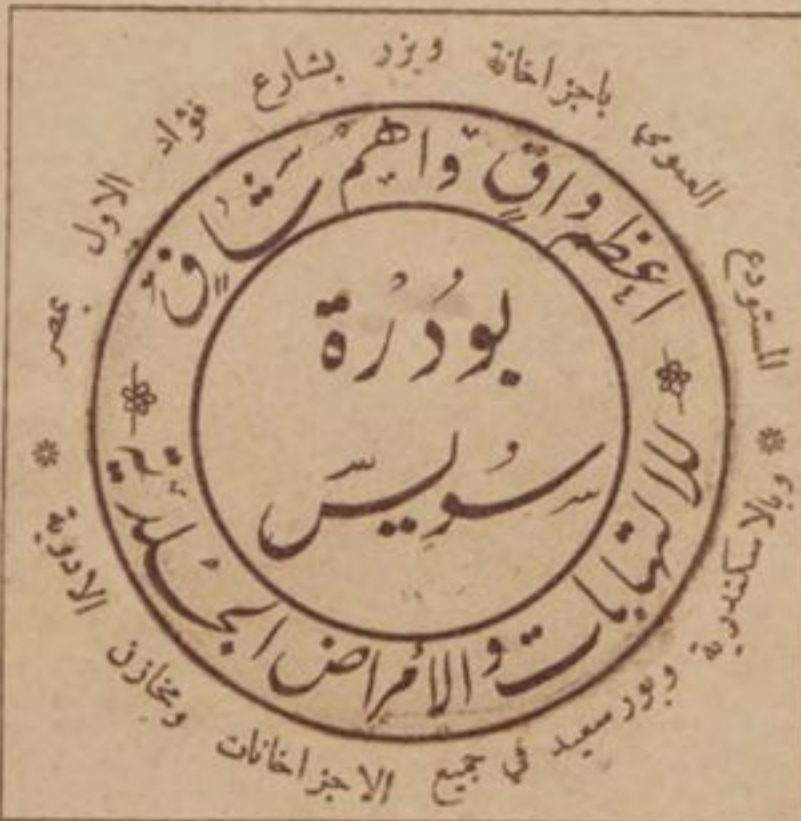 المستودع العمومي باجزاخانة ويزر بشارع فؤاد الاول بمصر
وبالاسكندرية وبورسعيد في جميع الاجزاخانات ومخازن الادوية
اعظم واقٍ واهم شافٍ
للالتهابات والأمراض الجلدية
بودرة
سويس